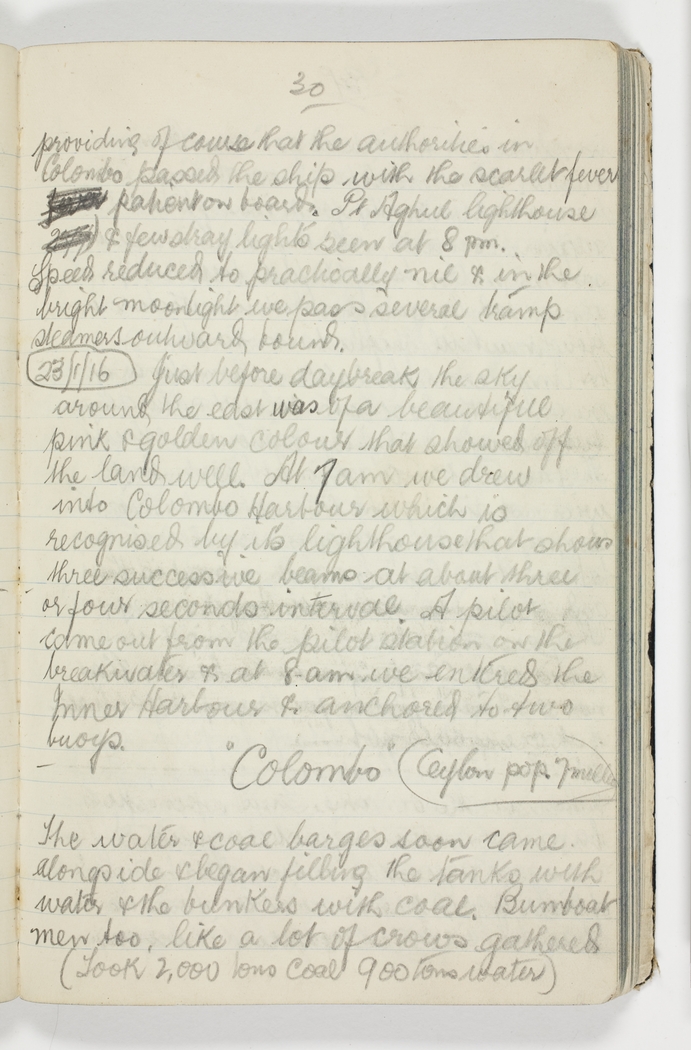 30
providing of course that the authorities in
Colombo passed the ship with the scarlet fever
patient on board. Pt Aghul lighthouse
& few stray lights seen at 8 pm.
Speed reduced to practically nil & in the
bright moonlight we pass several tramp
steamers outward bound.
23/1/16 Just before daybreak the sky
around the east was of a beautiful
pink & golden colour that showed off
the land well. At 7 am we drew
into Colombo Harbour which is
recognised by its lighthouse that shows
three successive beams at about three
or four seconds interval. A pilot
came out from the pilot station on the
breakwater & at 8 am we entered the
Inner Harbour & anchored to two
buoys.
"Colombo" (Ceylon pop. 7 mills
The water & coal barges soon came
alongside & began filling the tanks with
water & the bunkers with coal. Bumboat
men too, like a lot of crows gathered
(Took 2,000 tons coal 900 tons water)